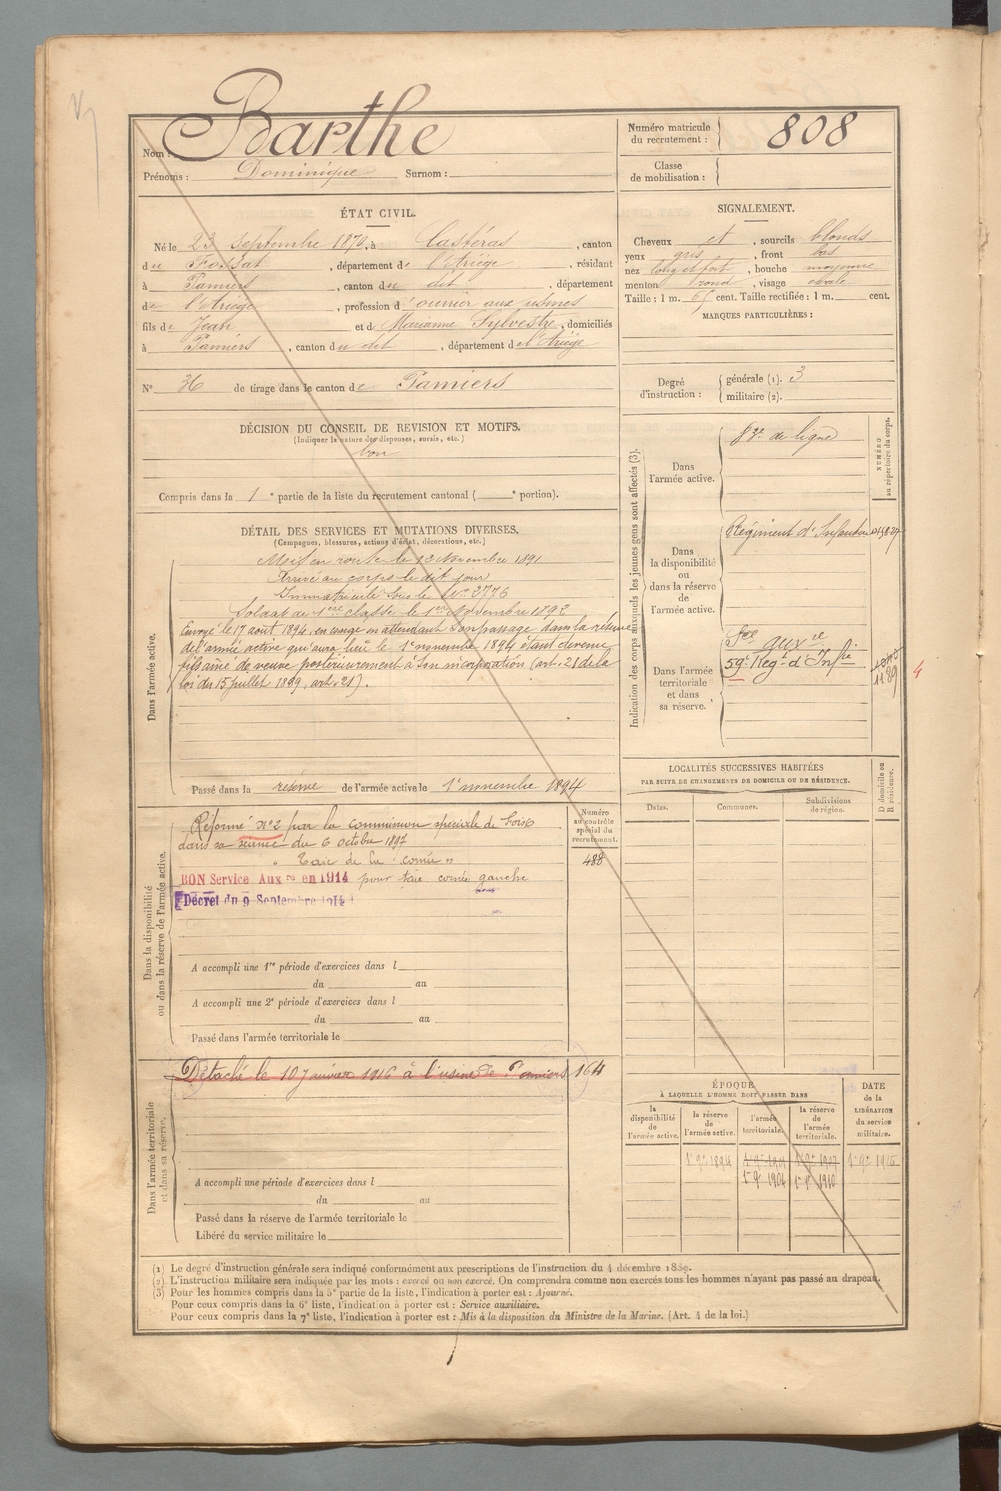 Nom : Barthe
Prénoms : Dominique Surnom :
Numéro matricule du recrutement : 808
Classe de mobilisation :
ÉTAT CIVIL.
Né le 23 septembre 1870, à Castéras, canton
du Fossat, département de l'Ariège, résidant
à Pamiers, canton du dit, département
de l'Ariège, profession d'ouvrier aux usines
fils de Jean et de Marianne Sylvestre, domiciliés
à Pamiers, canton du dit, département de l'Ariège
N° 36 de tirage dans le canton de Pamiers
SIGNALEMENT.
Cheveux et, sourcils blonds
yeux gris, front bas
nez long et fort, bouche moyenne
menton rond, visage ovale
Taille : 1 m. 65 cent. Taille rectifiée : 1 m. cent.
MARQUES PARTICULIÈRES :
Degré d'instruction : générale (1). 3
militaire (2).
DÉCISION DU CONSEIL DE REVISION ET MOTIFS.
(Indiquer la nature des dispenses, sursis, etc.)
bon
Compris dans la 1e partie de la liste du recrutement cantonal ( e portion).
DÉTAIL DES SERVICES ET MUTATIONS DIVERSES.
(Campagnes, blessures, actions d'éclat, décorations, etc.)
Dans l'armée active.
Mis en route le 12 Novembre 1891
Arrivé au corps le dit jour
Immatriculé sous le N° 2776
Soldat de 1ère classe le 1er Novembre 1892
Envoyé le 17 août 1894, en congé en attendant son passage dans la réserve
de l'armée active qui aura lieu le 1er novembre 1894 étant devenu
fils aîné de veuve postérieurement à son incorporation (art. 21 de la
loi du 15 juillet 1889, art. 21).
Passé dans la réserve de l'armée active le 1er novembre 1894
Indication des corps auxquels les jeunes gens sont affectés (3).
NUMÉRO au répertoire du corps.
Dans l'armée active.
83e de ligne
Dans la disponibilité ou dans la réserve de l'armée active.
Régiment d'Infanterie
Dans l'armée territoriale et dans sa réserve.
Sce auxre
59e Regt d'Inftie
1189
4
LOCALITÉS SUCCESSIVES HABITÉES
PAR SUITE DE CHANGEMENTS DE DOMICILE OU DE RÉSIDENCE.
D domicile ou R résidence.
Dates. Communes. Subdivisions de région.
Dans la disponibilité ou dans la réserve de l'armée active.
Numéro au contrôle spécial du recrutement.
488
Réformé n°2 par la commission spéciale de Foix
dans sa séance du 6 octobre 1897
" Taie de la cornée "
BON Service Auxre en 1914 pour taie cornée gauche
Décret du 9 Septembre 1914
A accompli une 1re période d'exercices dans l
du au
A accompli une 2e période d'exercices dans l
du au
Passé dans l'armée territoriale le
Dans l'armée territoriale et dans sa réserve.
Détaché le 10 janvier 1916 à l'usine de Pamiers 164
A accompli une période d'exercices dans l
du au
Passé dans la réserve de l'armée territoriale le
Libéré du service militaire le
ÉPOQUE
À LAQUELLE L'HOMME DOIT PASSER DANS
DATE de la LIBÉRATION du service militaire.
la disponibilité de l'armée active. la réserve de l'armée active. l'armée territoriale. la réserve de l'armée territoriale.
1er 9bre 1894 1er 9bre 1904 1er 9bre 1910
(1) Le degré d'instruction générale sera indiqué conformément aux prescriptions de l'instruction du 4 décembre 1889.
(2) L'instruction militaire sera indiquée par les mots : exercé ou non exercé. On comprendra comme non exercés tous les hommes n'ayant pas passé au drapeau.
(3) Pour les hommes compris dans la 5e partie de la liste, l'indication à porter est : Ajourné.
Pour ceux compris dans la 6e liste, l'indication à porter est : Service auxiliaire.
Pour ceux compris dans la 7e liste, l'indication à porter est : Mis à la disposition du Ministre de la Marine. (Art. 4 de la loi.)